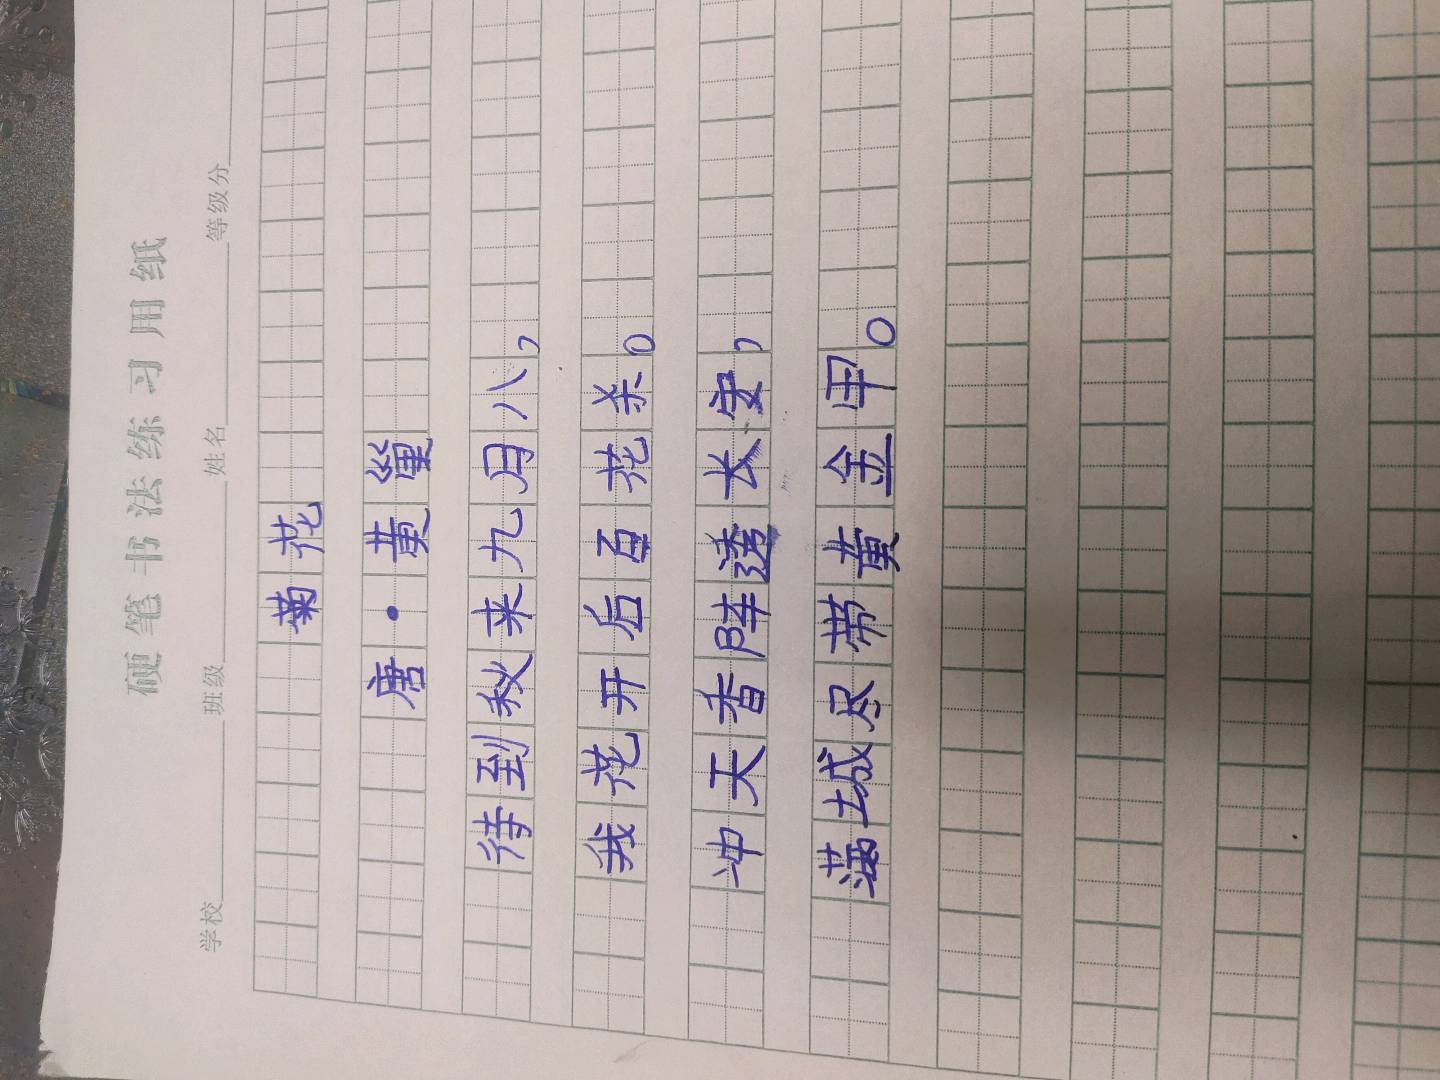 硬笔书法练习用纸
学校 班级 姓名 等级分
菊花
唐·黄巢
待到秋来九月八，
我花开后百花杀。
冲天香阵透长安，
满城尽带黄金甲。